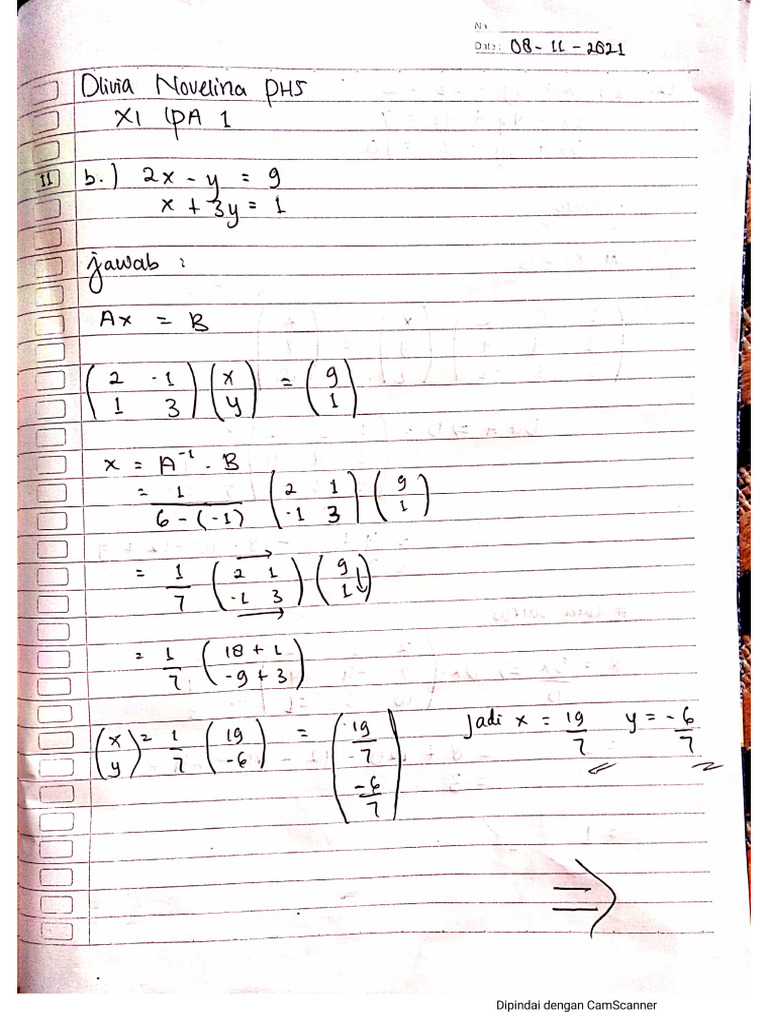 No
Date: 08-11-2021
Olivia Novelina PHS
XI IPA 1
11 b.) 2x - y = 9
x + 3y = 1
jawab :
Ax = B
(2 -1) (x) = (9)
(1 3) (y) (1)
x = A⁻¹ . B
= 1/(6-(-1)) (2 1) (9)
(-1 3) (1)
= 1/7 (2 1) (9)
(-1 3) (1)
= 1/7 (18 + 1)
(-9 + 3)
(x) = 1/7 (19) = (19/7) Jadi x = 19/7 y = -6/7
(y) (-6) (-6/7)
⇒
Dipindai dengan CamScanner